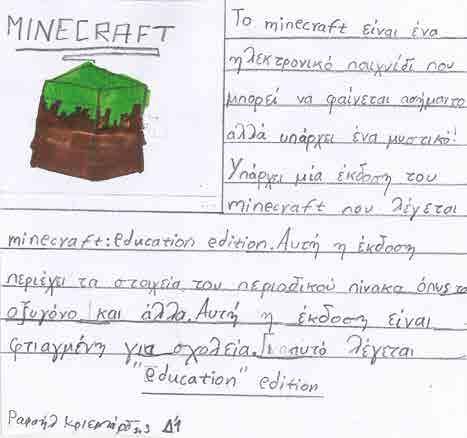 MINECRAFT
Το minecraft είναι ένα
ηλεκτρονικό παιχνίδι που
μπορεί να φαίνεται ασήμαντο
αλλά υπάρχει ένα μυστικό!
Υπάρχει μία έκδοση του
minecraft που λέγεται
minecraft: education edition. Αυτή η έκδοση
περιέχει τα στοιχεία του περιοδικού πίνακα όπως το
οξυγόνο και άλλα. Αυτή η έκδοση είναι
φτιαγμένη για σχολεία. Γι αυτό λέγεται
"education" edition
Δ'1